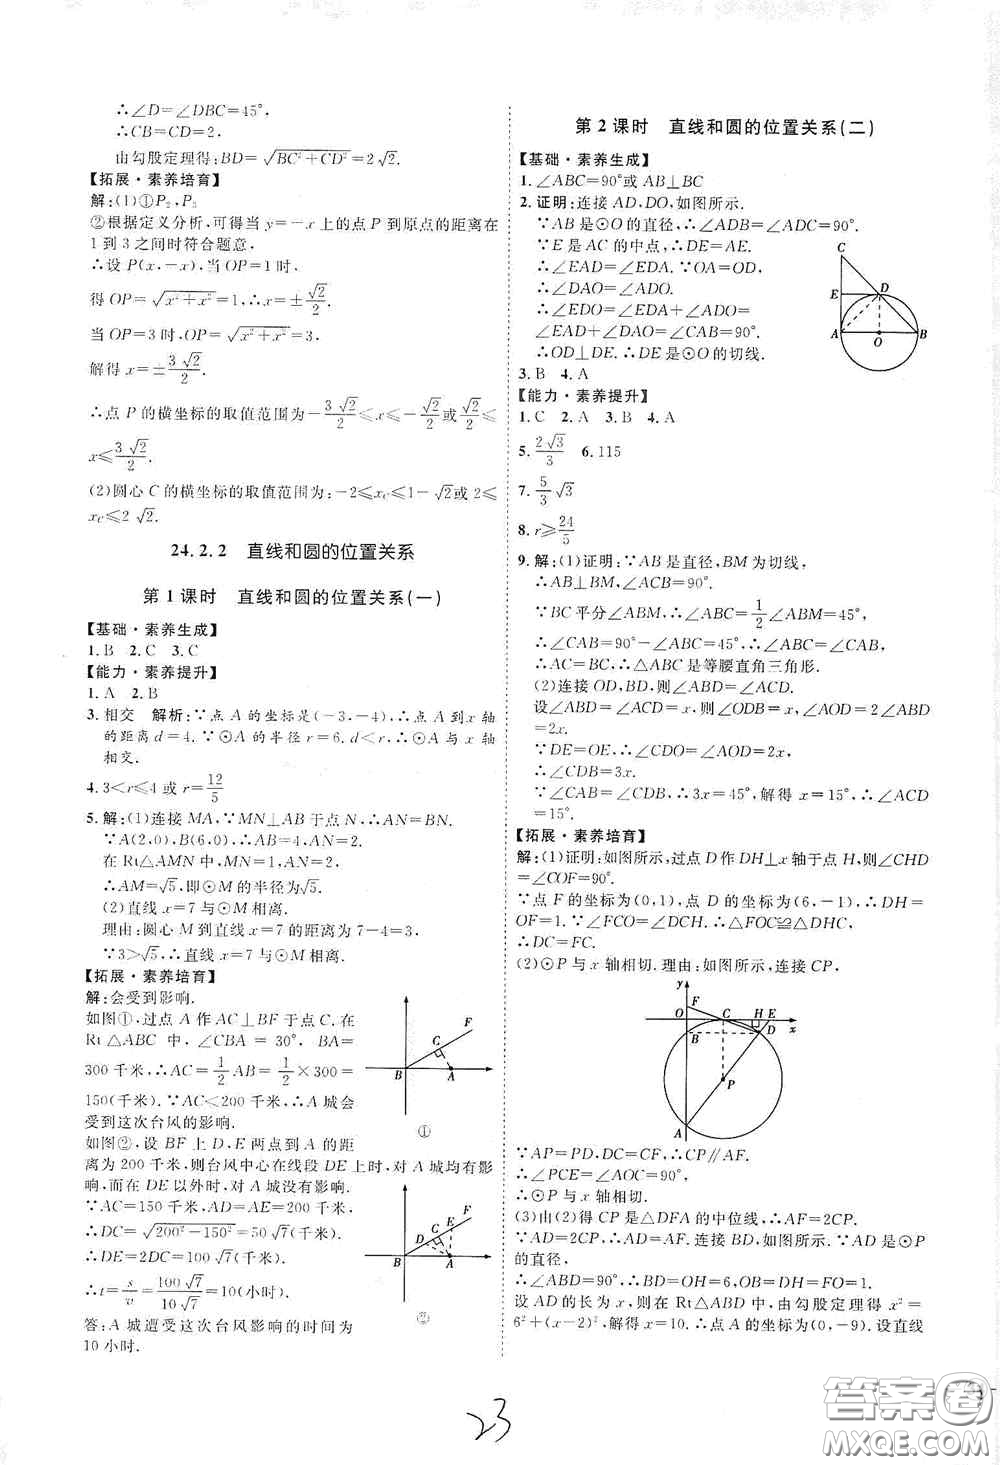 ∴∠D=∠DBC=45°,
∴CB=CD=2,
由勾股定理得:BD=√(BC²+CD²)=2√2.
【拓展·素养培育】
解:(1)①P₂,P₃
②根据定义分析,可得当 y=-x 上的点 P 到原点的距离在
1 到 3 之间时符合题意,
∴设 P(x,-x),当 OP=1 时,
得 OP=√(x²+x²)=1,∴x=±√2/2.
当 OP=3 时,OP=√(x²+x²)=3,
解得 x=±3√2/2.
∴点 P 的横坐标的取值范围为-3√2/2≤x≤-√2/2或√2/2≤
x≤3√2/2.
(2)圆心 C 的横坐标的取值范围为:-2≤x_C≤1-√2或 2≤
x_C≤2√2.
24.2.2 直线和圆的位置关系
第 1 课时 直线和圆的位置关系(一)
【基础·素养生成】
1.B 2.C 3.C
【能力·素养提升】
1.A 2.B
3.相交 解析:∵点 A 的坐标是(-3,-4),∴点 A 到 x 轴
的距离 d=4.∵⊙A 的半径 r=6,d<r,∴⊙A 与 x 轴
相交.
4.3<r≤4 或 r=12/5
5.解:(1)连接 MA,∵MN⊥AB 于点 N,∴AN=BN.
∵A(2,0),B(6,0),∴AB=4,AN=2.
在 Rt△AMN 中,∵MN=1,AN=2,
∴AM=√5,即⊙M 的半径为√5.
(2)直线 x=7 与⊙M 相离.
理由:圆心 M 到直线 x=7 的距离为 7-4=3,
∵3>√5,∴直线 x=7 与⊙M 相离.
【拓展·素养培育】
解:会受到影响.
如图①,过点 A 作 AC⊥BF 于点 C.在
Rt△ABC 中,∠CBA=30°,BA=
300 千米,∴AC=1/2 AB=1/2×300=
150(千米).∵AC<200 千米,∴A 城会
受到这次台风的影响.
如图②,设 BF 上 D,E 两点到 A 的距
离为 200 千米,则台风中心在线段 DE 上时,对 A 城均有影
响,而在 DE 以外时,对 A 城没有影响.
∵AC=150 千米,AD=AE=200 千米,
∴DC=√(200²-150²)=50√7(千米).
∴DE=2DC=100√7(千米).
∴t=s/v=100√7/10√7=10(小时).
答:A 城遭受这次台风影响的时间为
10 小时.
F
C
B
A
①
F
E
C
D
B
A
②
第 2 课时 直线和圆的位置关系(二)
【基础·素养生成】
1.∠ABC=90°或 AB⊥BC
2.证明:连接 AD,DO,如图所示.
∵AB 是⊙O 的直径,∴∠ADB=∠ADC=90°.
∵E 是 AC 的中点,∴DE=AE.
∴∠EAD=∠EDA.∵OA=OD,
∴∠DAO=∠ADO.
∴∠EDO=∠EDA+∠ADO=
∠EAD+∠DAO=∠CAB=90°.
∴OD⊥DE.∴DE 是⊙O 的切线.
C
E
D
A
O
B
3.B 4.A
【能力·素养提升】
1.C 2.A 3.B 4.A
5.2√3/3 6.115
7.5/3√3
8.r≥24/5
9.解:(1)证明:∵AB 是直径,BM 为切线,
∴AB⊥BM,∠ACB=90°.
∵BC 平分∠ABM,∴∠ABC=1/2∠ABM=45°,
∴∠CAB=90°-∠ABC=45°,∴∠ABC=∠CAB,
∴AC=BC,∴△ABC 是等腰直角三角形.
(2)连接 OD,BD,则∠ABD=∠ACD.
设∠ABD=∠ACD=x,则∠ODB=x,∠AOD=2∠ABD
=2x.
∵DE=OE,∴∠CDO=∠AOD=2x,
∴∠CDB=3x.
∵∠CAB=∠CDB,∴3x=45°,解得 x=15°,∴∠ACD
=15°.
【拓展·素养培育】
解:(1)证明:如图所示,过点 D 作 DH⊥x 轴于点 H,则∠CHD
=∠COF=90°.
∵点 F 的坐标为(0,1),点 D 的坐标为(6,-1),∴DH=
OF=1.∵∠FCO=∠DCH,∴△FOC≌△DHC,
∴DC=FC.
(2)⊙P 与 x 轴相切.理由:如图所示,连接 CP,
y
F
O
C
H
E
x
B
D
P
A
∵AP=PD,DC=CF,∴CP∥AF.
∴∠PCE=∠AOC=90°.
∴⊙P 与 x 轴相切.
(3)由(2)得 CP 是△DFA 的中位线,∴AF=2CP.
∵AD=2CP,∴AD=AF.连接 BD,如图所示.∵AD 是⊙P
的直径,
∴∠ABD=90°,∴BD=OH=6,OB=DH=FO=1.
设 AD 的长为 x,则在 Rt△ABD 中,由勾股定理得 x²=
6²+(x-2)²,解得 x=10.∴点 A 的坐标为(0,-9).设直线
23
答案圈
MXQE.COM